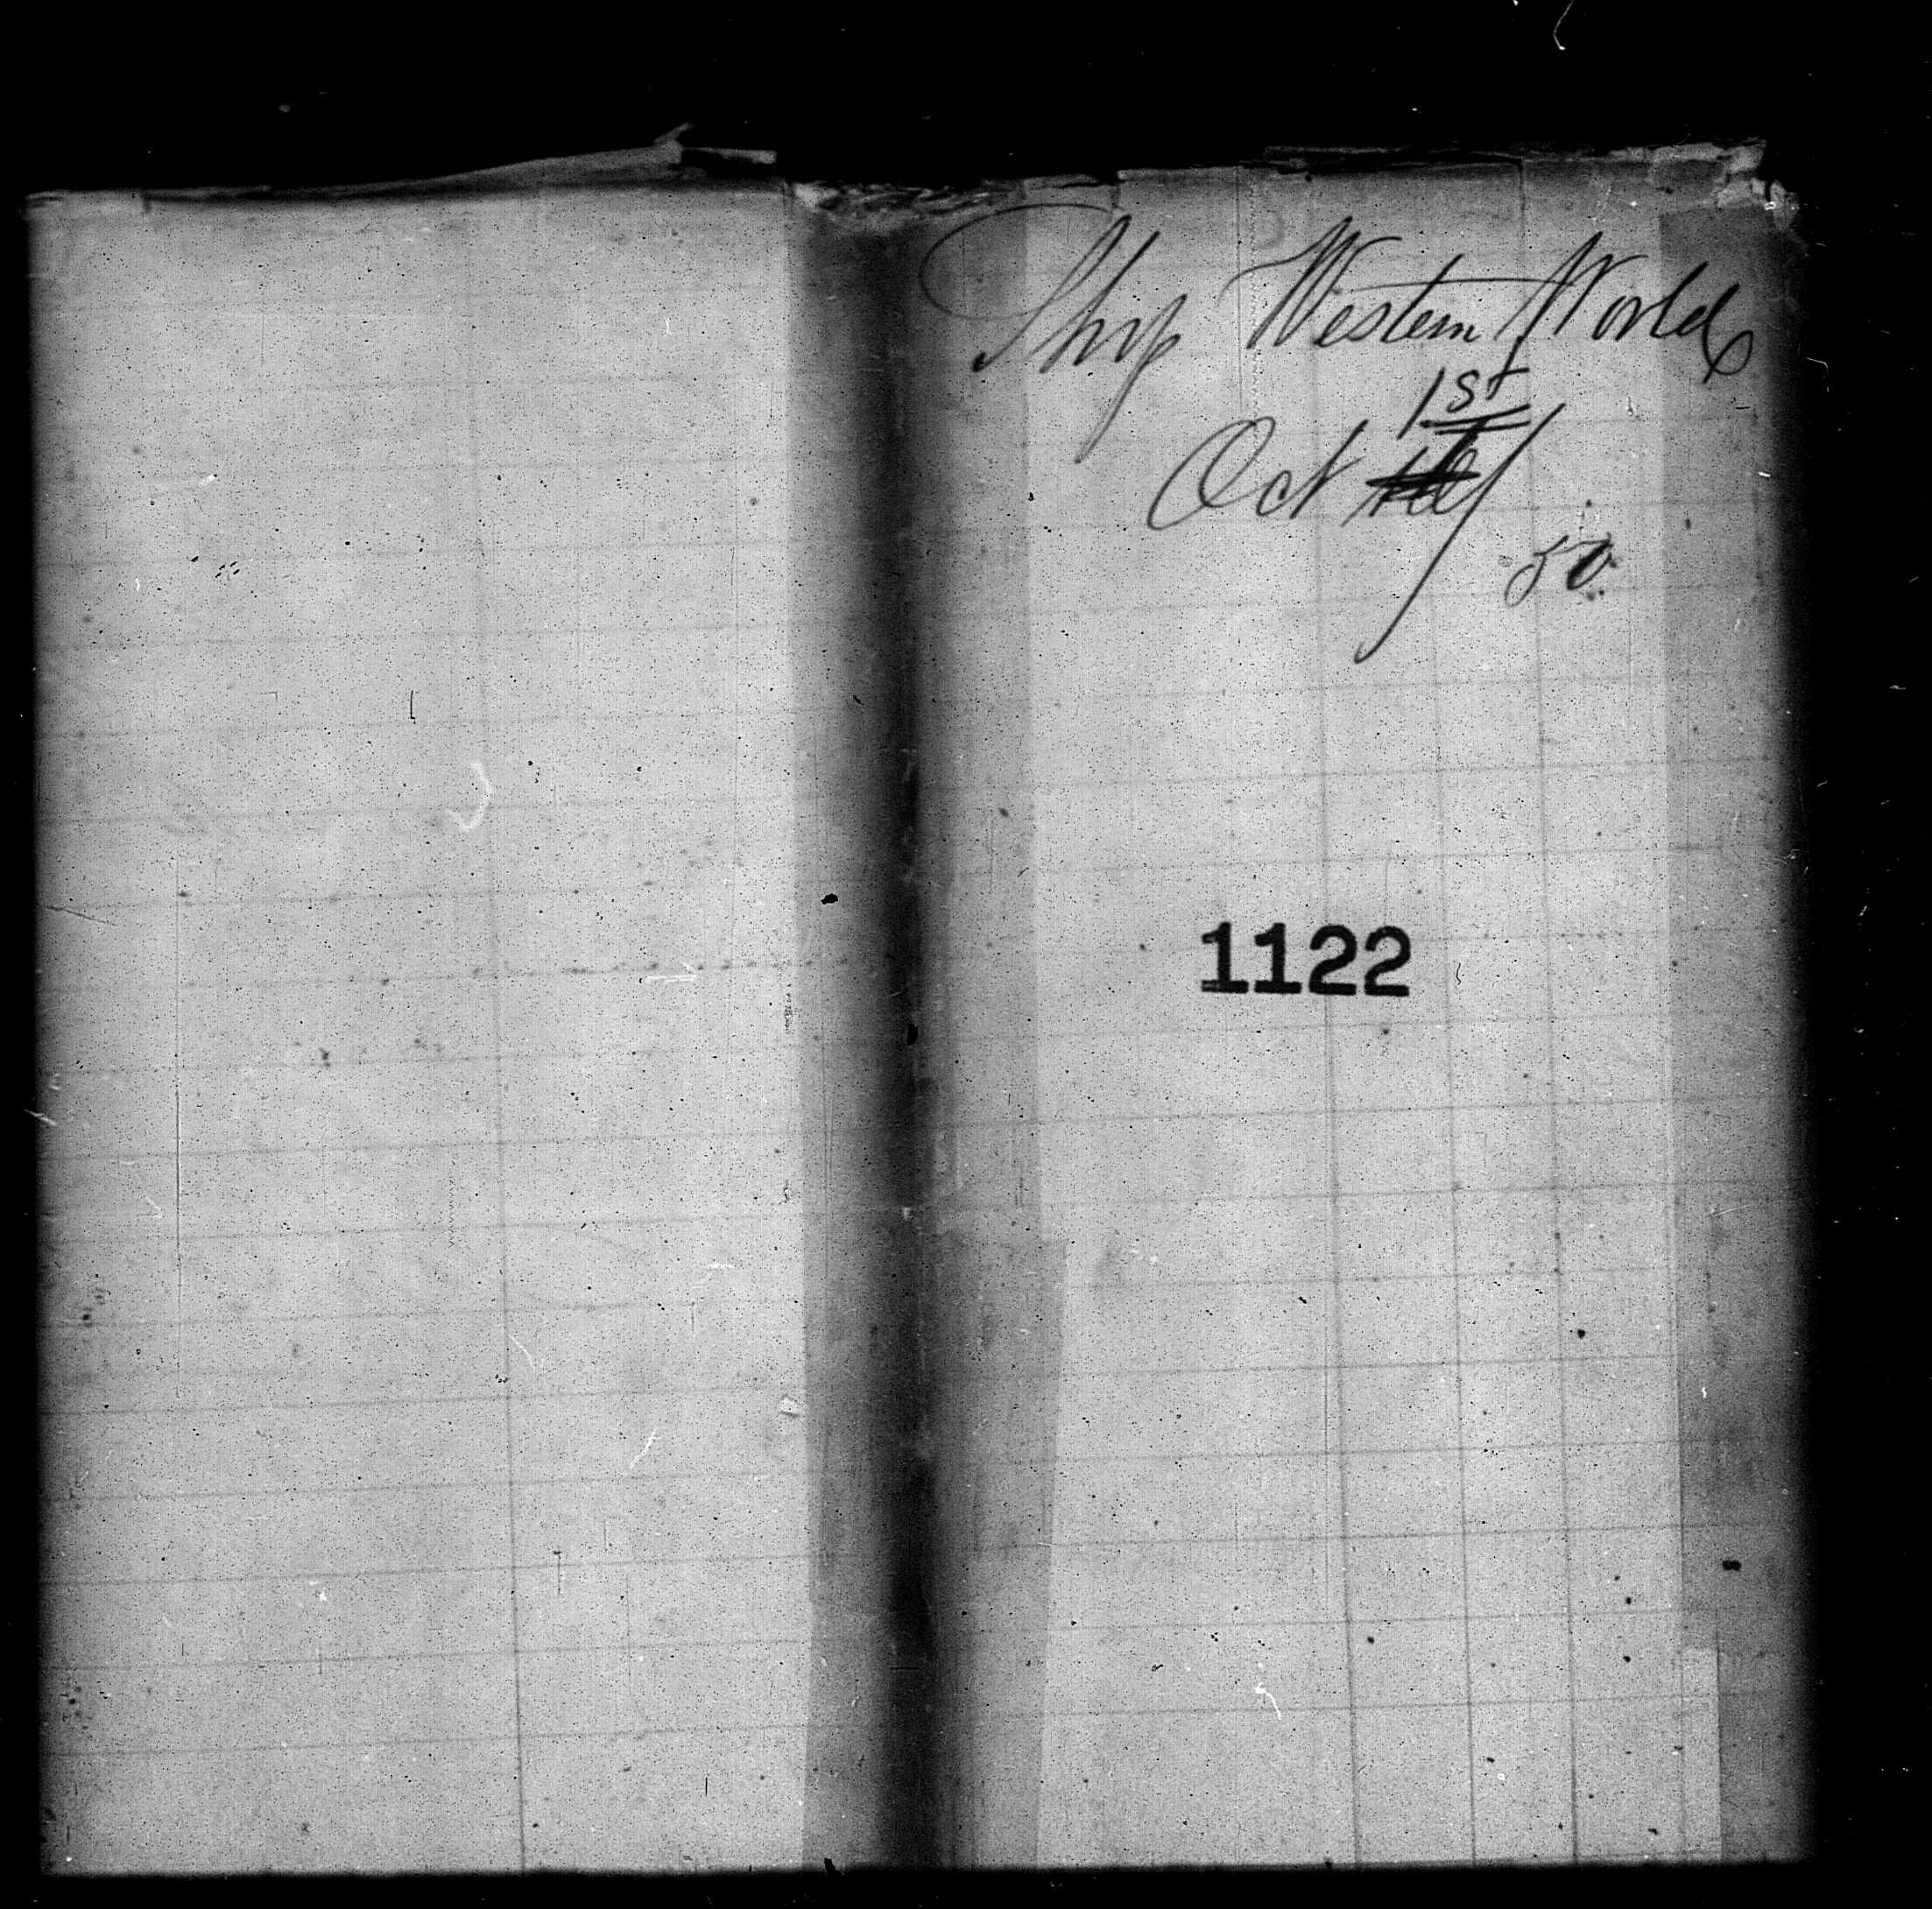 Ship Western World
1st
Oct
50
1122